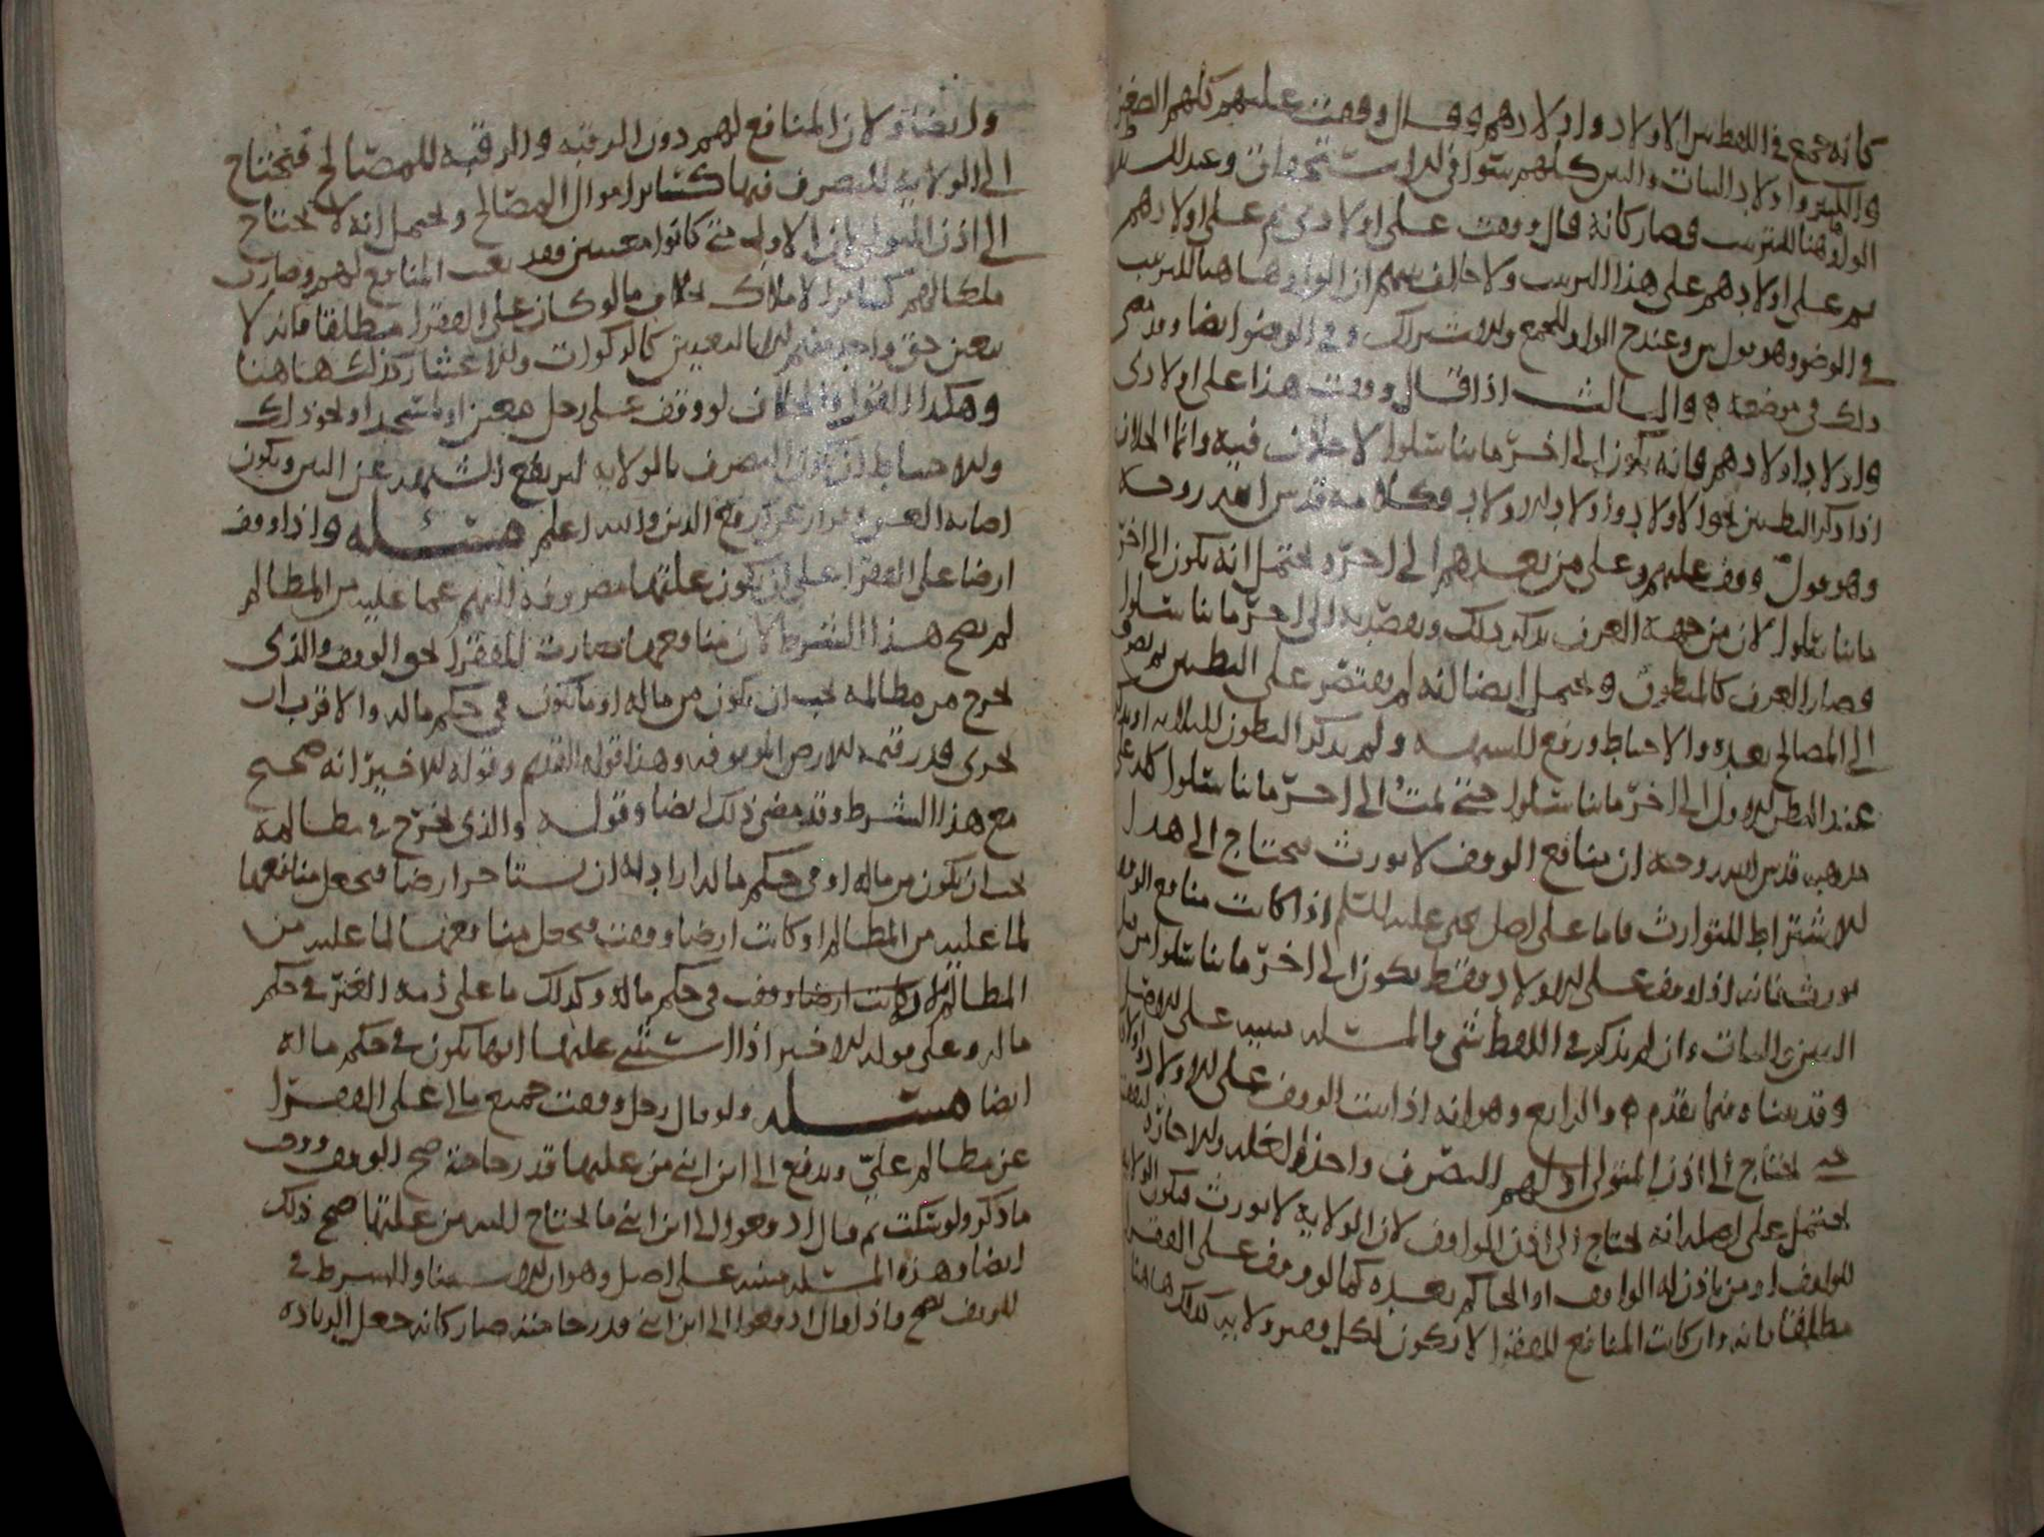 كانه جمع في اللفظ بين الاولاد واولادهم وقال وقفت عليهم كلهم الصغير
والكبير واولاد البنات والبنين كلهم سوا في الاستحقاق وعند
الواو هنا للترتيب فصار كانه قال وقفت على اولادي ثم على اولادهم
ثم على اولادهم على هذا الترتيب ولا خالف بينهم ان الواو هاهنا للترتيب
في الوضو وهو يقول وعند ح الواو للجمع والاشتراك وفي الوضو ايضا وقد مضى
ذلك في موضعه والثالث اذا قال وقفت هذا على اولادي
واولاد اولادهم فانه يكون الى اخر ما تناسلوا لا خلاف فيه وانما الخلاف
اذا ذكر البطنين نحو الاولاد واولاد الاولاد وكلامه قدس الله روحه
وهو قول وقف عليهم وعلى من بعدهم الى اخر ويحتمل انه يكون الى اخر
ما تناسلوا لان من جهة العرف يذكر ذلك ويقصد به الى اخر ما تناسلوا
وصار العرف كالمنطوق ويحتمل ايضا انه لم يقتصر على البطنين ثم يصرف
الى المصالح بعده والاحتياط ورفع للشبهة ولم يذكر البطون الثلاثة
عند البطن الاول الى اخر ما تناسلوا حتى الى اخر ما تناسلوا
مذهبه قدس الله روحه ان منافع الوقف لا تورث يحتاج الى هذا
الاشتراط للتوارث فاما على اصل يحيى عليه السلم اذا كانت منافع الوقف
تورث فانه اذا وقف على الاولاد فقط يكون الى اخر ما تناسلوا من
البنين والبنات وان لم يذكر في اللفظ شي والمسئلة مبنيه على
وقد بيناه فيما تقدم والرابع وهو انه اذا ثبت الوقف على الاولاد
يحتاج الى اذن المتولي لهم التصرف واخذ الغله والاجازه
يحتمل على اصله انه يحتاج الى اذن الواقف لان الولايه لا تورث فيكون الولايه
للواقف او من ياذن له الواقف او الحاكم بعده كما لو وقف على الفقرا
مطلقا فانه وان كانت المنافع للفقرا لا تكون لكل فقير ولايه كذلك هاهنا
وايضا ولان المنافع لهم دون الرقبه والرقبه للمصالح فتحتاج
الى الولايه للتصرف فيها كسائر اموال المصالح ويحتمل انه لا يحتاج
الى اذن المتولي لان الاوله متى كانوا معينين فقد تعينت المنافع لهم وصارت
ملكا لهم كسائر الاملاك بخلاف ما لو كان على الفقرا مطلقا فانه لا
يتعين حق واحد منهم الا بالتعيين كالزكوات والاعشار كذلك هاهنا
وهكذا القول والخلاف لو وقف على رجل معين او مسجد او نحو ذلك
والاحتياط ان يكون التصرف بالولايه ليرتفع الشبهه عن البين ويكون
اصابه الحق وقرار عن فرقع الدين والله اعلم مسئله واذا وقف
ارضا على الفقرا على ان يكون غلتها مصروفه اليهم عما عليه من المظالم
لم يصح هذا الشرط لان منافعها صارت للفقرا بحق الوقف والذي
يخرج من مظالمه يجب ان يكون من ماله او ما يكون في حكم ماله والاقرب ان
يجزى قدر قيمه الارض الموقوفه وهذا قوله القديم وقوله الاخير انه صحيح
مع هذا الشرط وقد مضى ذلك ايضا وقوله والذي يخرج في مظالمه
يجب ان يكون من ماله او في حكم ماله اراد به ان يستاجر ارضا فيجعل منافعها
لما عليه من المظالم او كانت ارضا وقفت فيجعل منافعها لما عليه من
المظالم لان كانت ارضا وقف في حكم ماله وكذلك ما على ذمه الغير في حكم
ماله وعلى قوله الاخير اذا استثنى غلتها انها تكون في حكم ماله
ايضا مسئله ولو قال رجل وقفت جميع مالي على الفقرا
عن مظالم علي ويدفع الى ابن ابني من غلتها قدر حاجته صح الوقف ووقف
ما ذكر ولو سكت ثم قال ادفعوا الى ابن ابني ما يحتاج اليه من غلتها صح ذلك
ايضا وهذه المسئله مبنيه على اصل وهو ان الاستثنا والشرط في
الوقف يصح واذا قال ادفعوا الى ابن ابني قدر حاجته صار كانه جعل الزياده